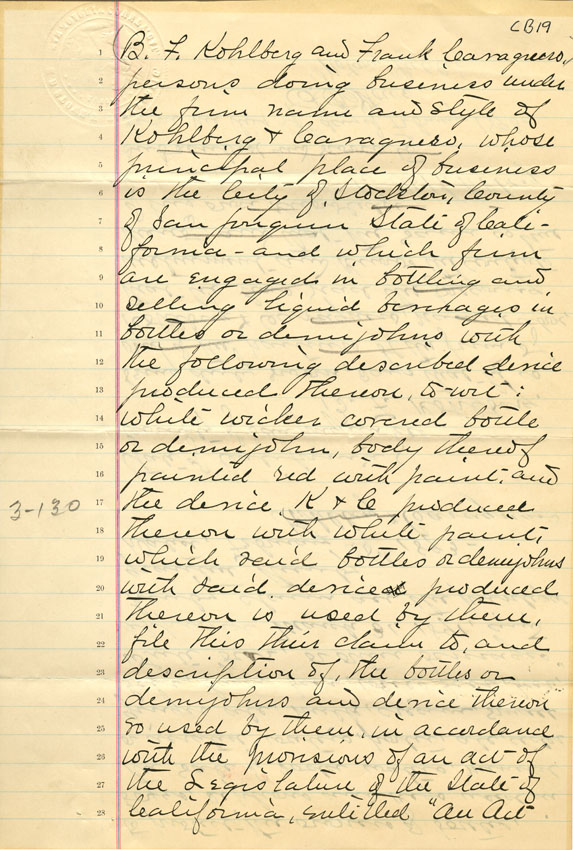 CB19
1 B. F. Kohlberg and Frank Cavagnero,
2 persons doing business under
3 the firm name and style of
4 Kohlberg & Cavagnero, whose
5 principal place of business
6 is the City of Stockton, County
7 of San Joaquin State of Cali-
8 fornia - and which firm
9 are engaged in bottling and
10 selling liquid beverages in
11 bottles or demijohns with
12 the following described device
13 produced thereon, to-wit:
14 white wicker covered bottle
15 or demijohn, body thereof
16 painted red with paint, and
3-130
17 the device K & C produced
18 thereon with white paint,
19 which said bottles or demijohns
20 with said device produced
21 thereon is used by them,
22 file this their claim to, and
23 description of, the bottles or
24 demijohns and device thereon
25 so used by them, in accordance
26 with the provisions of an act of
27 the Legislature of the State of
28 California, entitled "An Act